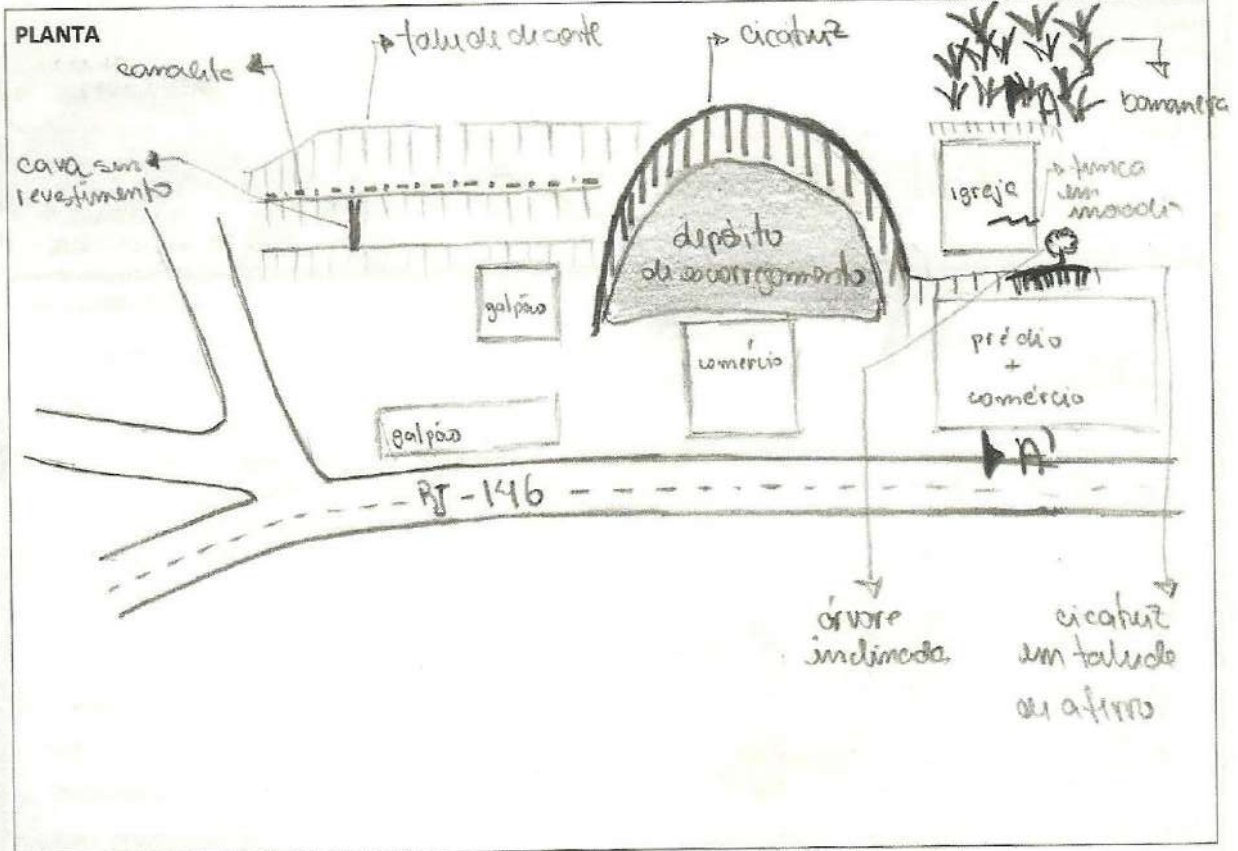 PLANTA
canalete
talude de corte
cicatriz
bananeira
A
cava sem
revestimento
igreja
trinca
em
moradia
depósito
de escorregamento
galpão
comércio
prédio
+
comércio
galpão
A'
RJ-146
árvore
inclinada
cicatriz
em talude
de aterro